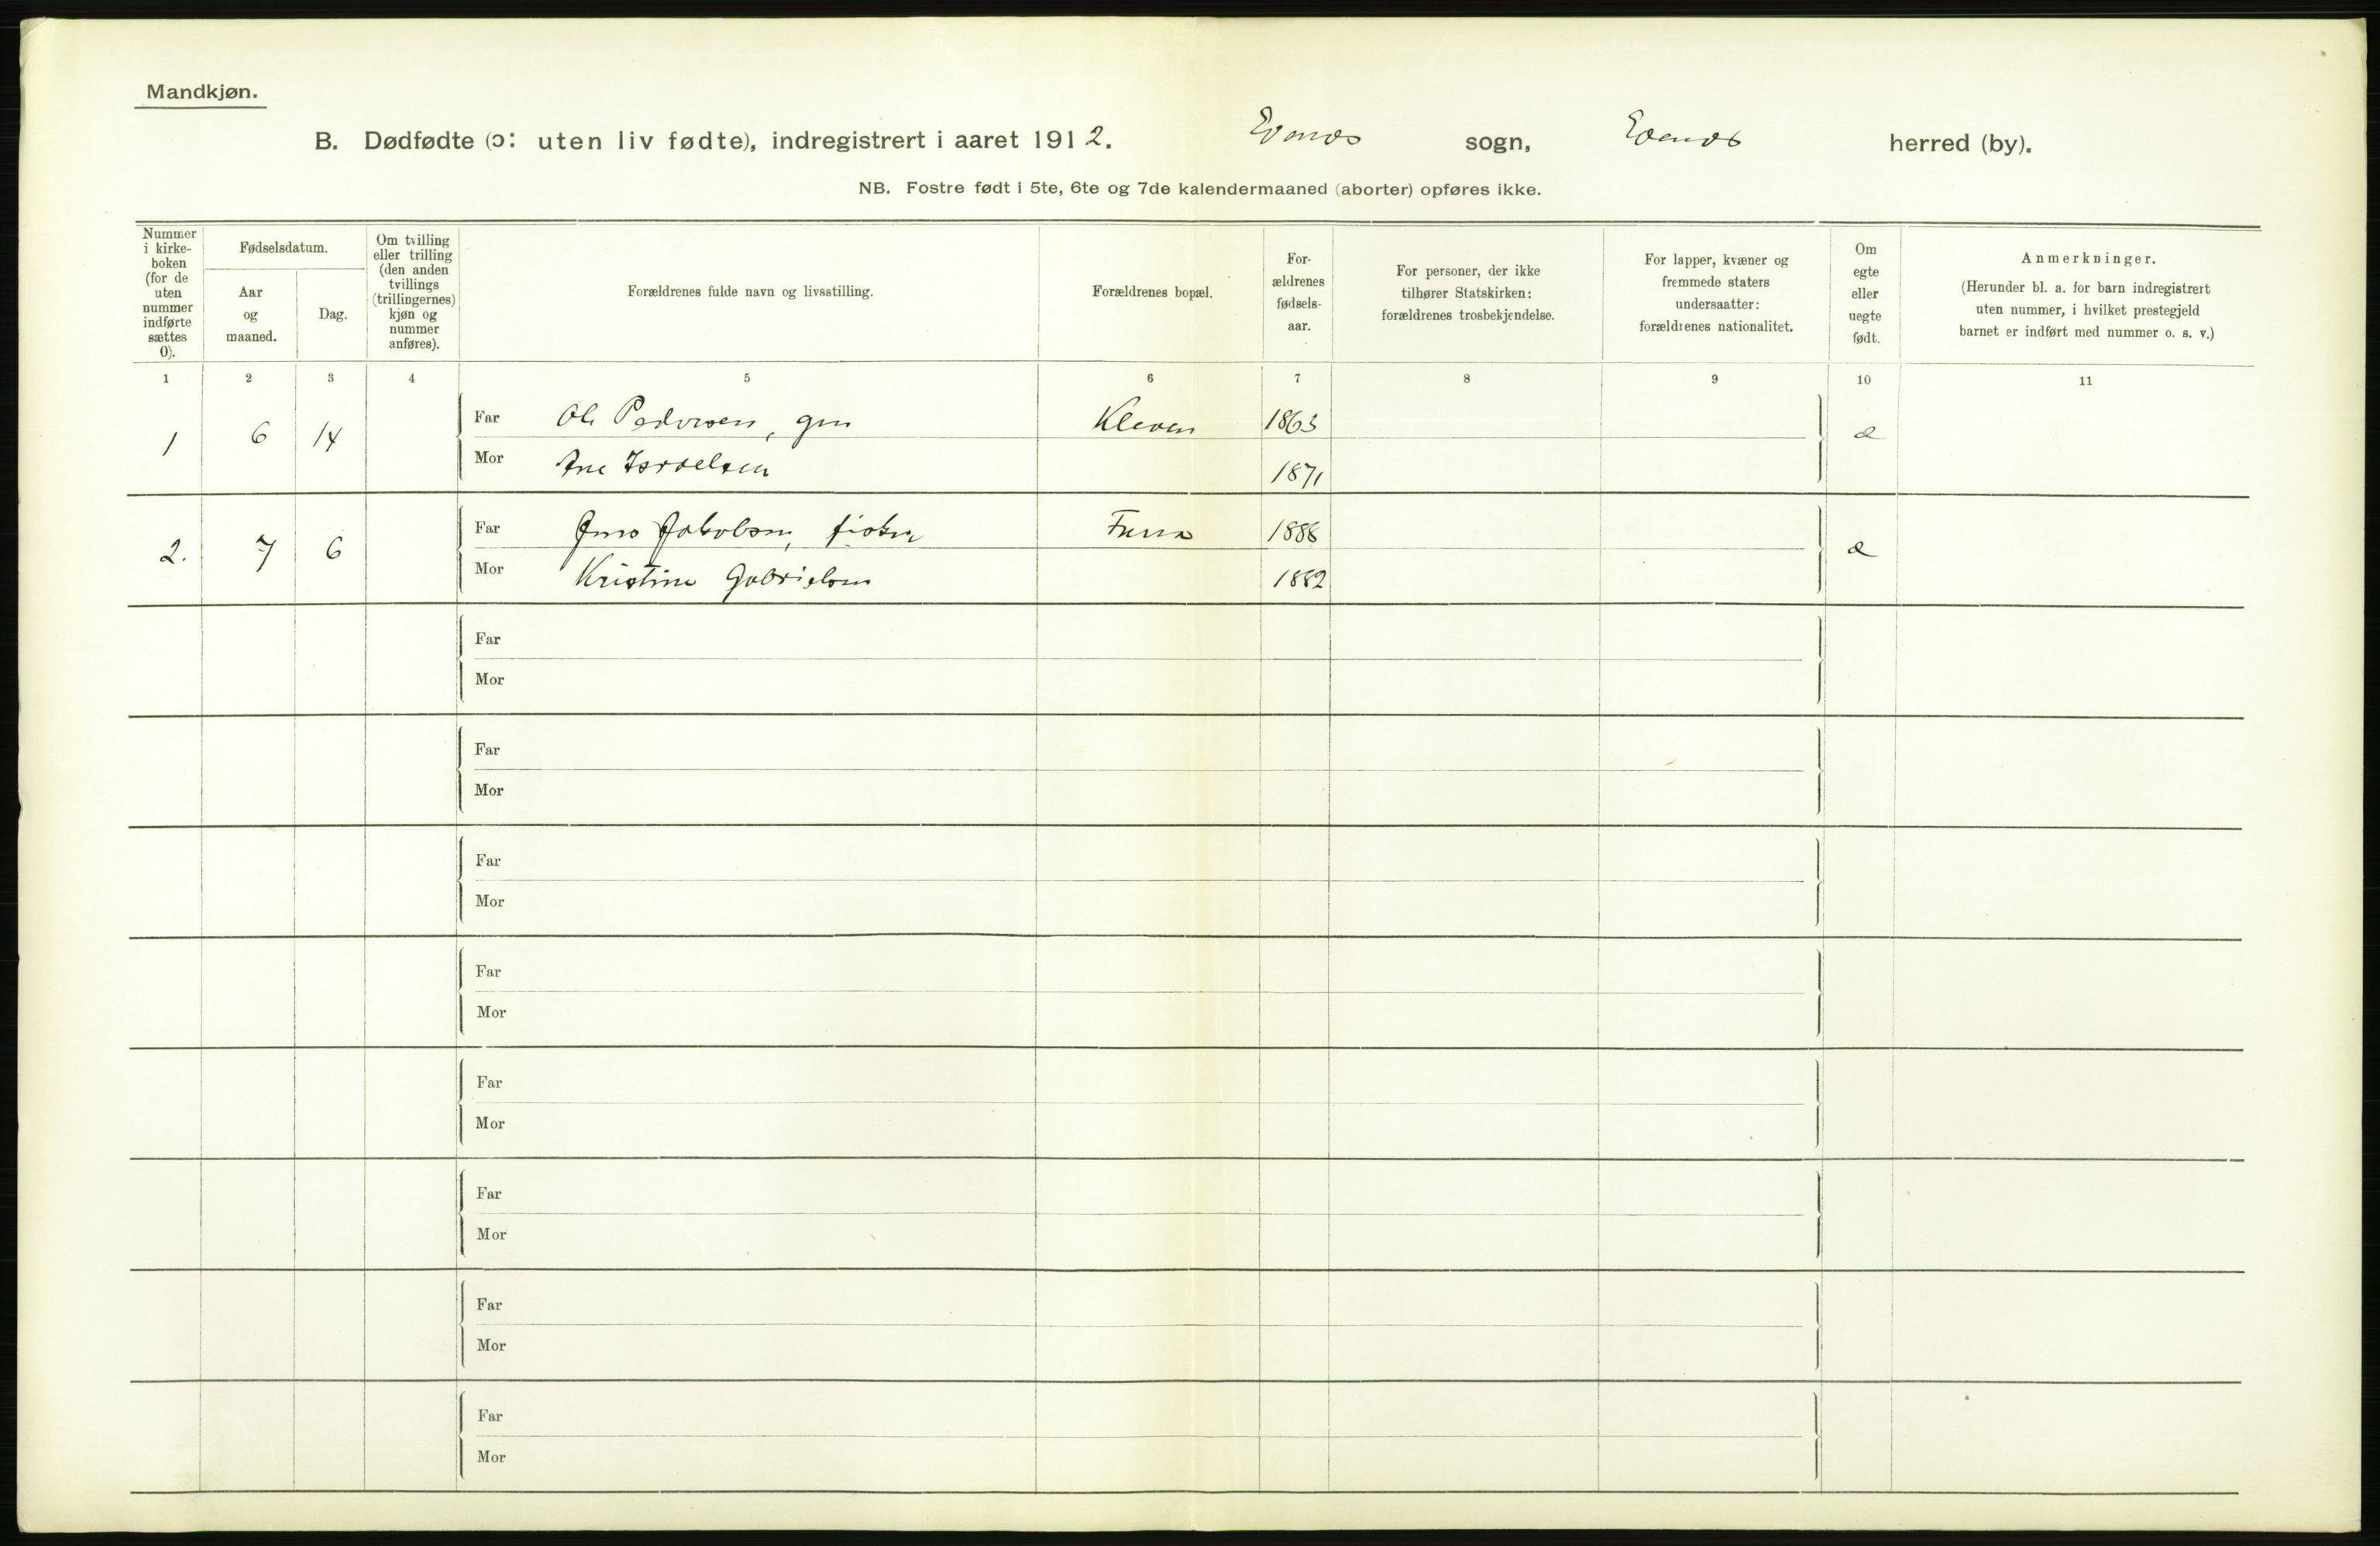 Mandkjøn.
B. Dødfødte (ɔ: uten liv fødte), indregistrert i aaret 1912. Evenes sogn, Evenes herred (by).
NB. Fostre født i 5te, 6te og 7de kalendermaaned (aborter) opføres ikke.
Nummer
i kirke-
boken
(for de
uten
nummer
indførte
sættes
0).
Fødselsdatum.
Aar
og
maaned.
Dag.
Om tvilling
eller trilling
(den anden
tvillings
(trillingernes)
kjøn og
nummer
anføres).
Forældrenes fulde navn og livsstilling.
Forældrenes bopæl.
For-
ældrenes
fødsels-
aar.
For personer, der ikke
tilhører Statskirken:
forældrenes trosbekjendelse.
For lapper, kvæner og
fremmede staters
undersaatter:
forældrenes nationalitet.
Om
egte
eller
uegte
født.
Anmerkninger.
(Herunder bl. a. for barn indregistrert
uten nummer, i hvilket prestegjeld
barnet er indført med nummer o. s. v.)
1 2 3 4 5 6 7 8 9 10 11
1 6 14
Far Ole Pedersen, gm Kleven 1863
Mor Ane Israelsen 1871
æ
2. 7 6
Far Jens Jakobsen, fisker 1888
Mor Kristine Gabrielsen 1882
æ
Far
Mor
Far
Mor
Far
Mor
Far
Mor
Far
Mor
Far
Mor
Far
Mor
Far
Mor